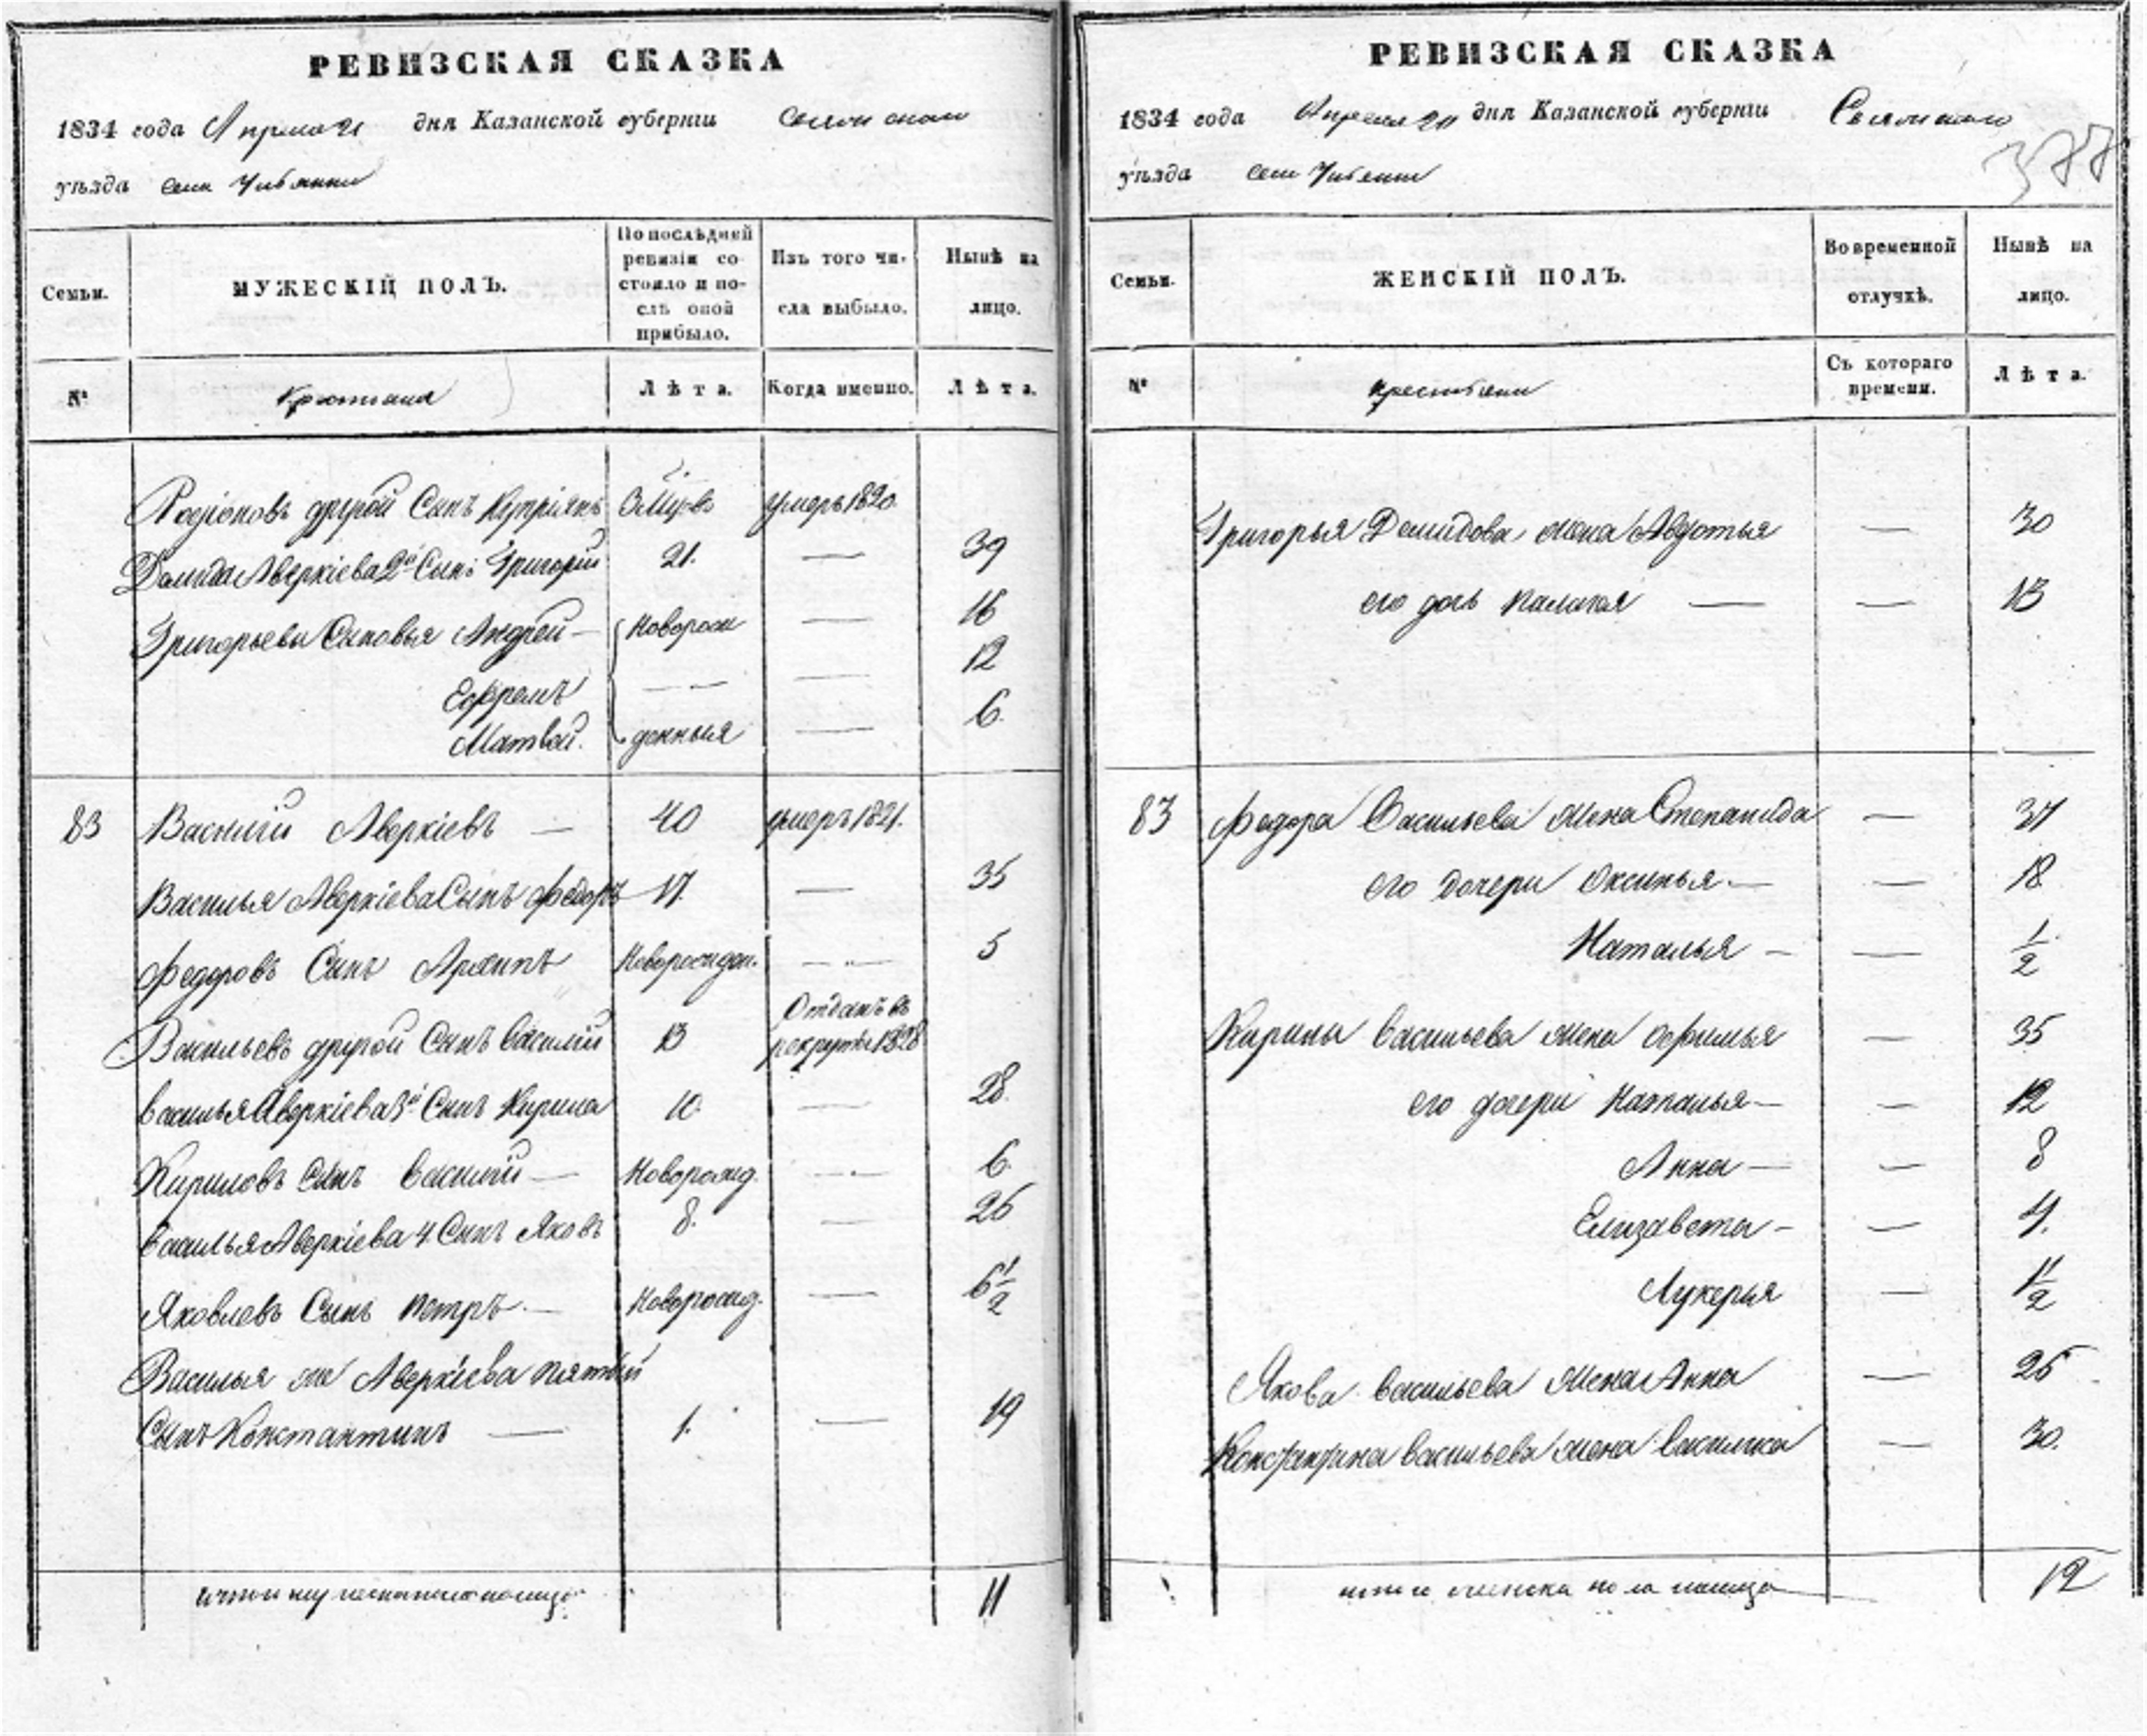 РЕВИЗСКАЯ СКАЗКА
1834 года Апреля 21 дня Казанской губерніи
уѣзда села
Семьи.
МУЖЕСКІЙ ПОЛЪ.
По послѣдней ревизіи состояло и послѣ оной прибыло.
Изъ того числа выбыло.
Нынѣ на лицо.
№
Лѣта.
Когда именно.
Лѣта.
Родіоновъ другой Сынъ Купріянъ умеръ 1820.
Демида Аверкіева 2й Сынъ Григорій 21. — 39
Григорьевы Сыновья Андрей — Новорож — 16
Ефремъ — — — 12
Матвей. денныя — 6.
83 Василій Аверкіевъ — 40 умеръ 1821.
Василья Аверкіева Сынъ Федоръ 17. — 35
Федоровъ Сынъ Архипъ Новорожден. — 5
Васильевъ другой Сынъ Василій 13 Отданъ въ рекруты 1828
Василья Аверкіева 3й Сынъ Кирила 10. — 28.
Кириловъ Сынъ Василій — Новорожд. — 6.
Василья Аверкіева 4 Сынъ Яковъ 8. — 26
Яковлевъ Сынъ Петръ. — Новорожд. — 6 1/2
Василья же Аверкіева пятый
Сынъ Константинъ — 1. — 19
11
РЕВИЗСКАЯ СКАЗКА
1834 года Апреля 21 дня Казанской губерніи
377
уѣзда села
Семьи.
ЖЕНСКІЙ ПОЛЪ.
Во временной отлучкѣ.
Нынѣ на лицо.
№
крестьяни
Съ котораго времени.
Лѣта.
Григорья Демидова жена Авдотья — 30
его дочь Палагея — — 13
83 Федора Васильева жена Степанида — 37
его дочери Оксинья. — — 18
Наталья — — 1/2
Кирилы Васильева жена Офимья — 35
его дочери Наталья — — 12
Анна — — 8
Елизавета — — 4.
Лукерья — 1 1/2
Якова Васильева жена Анна — 26
Константина Васильева жена Василиса — 30.
12